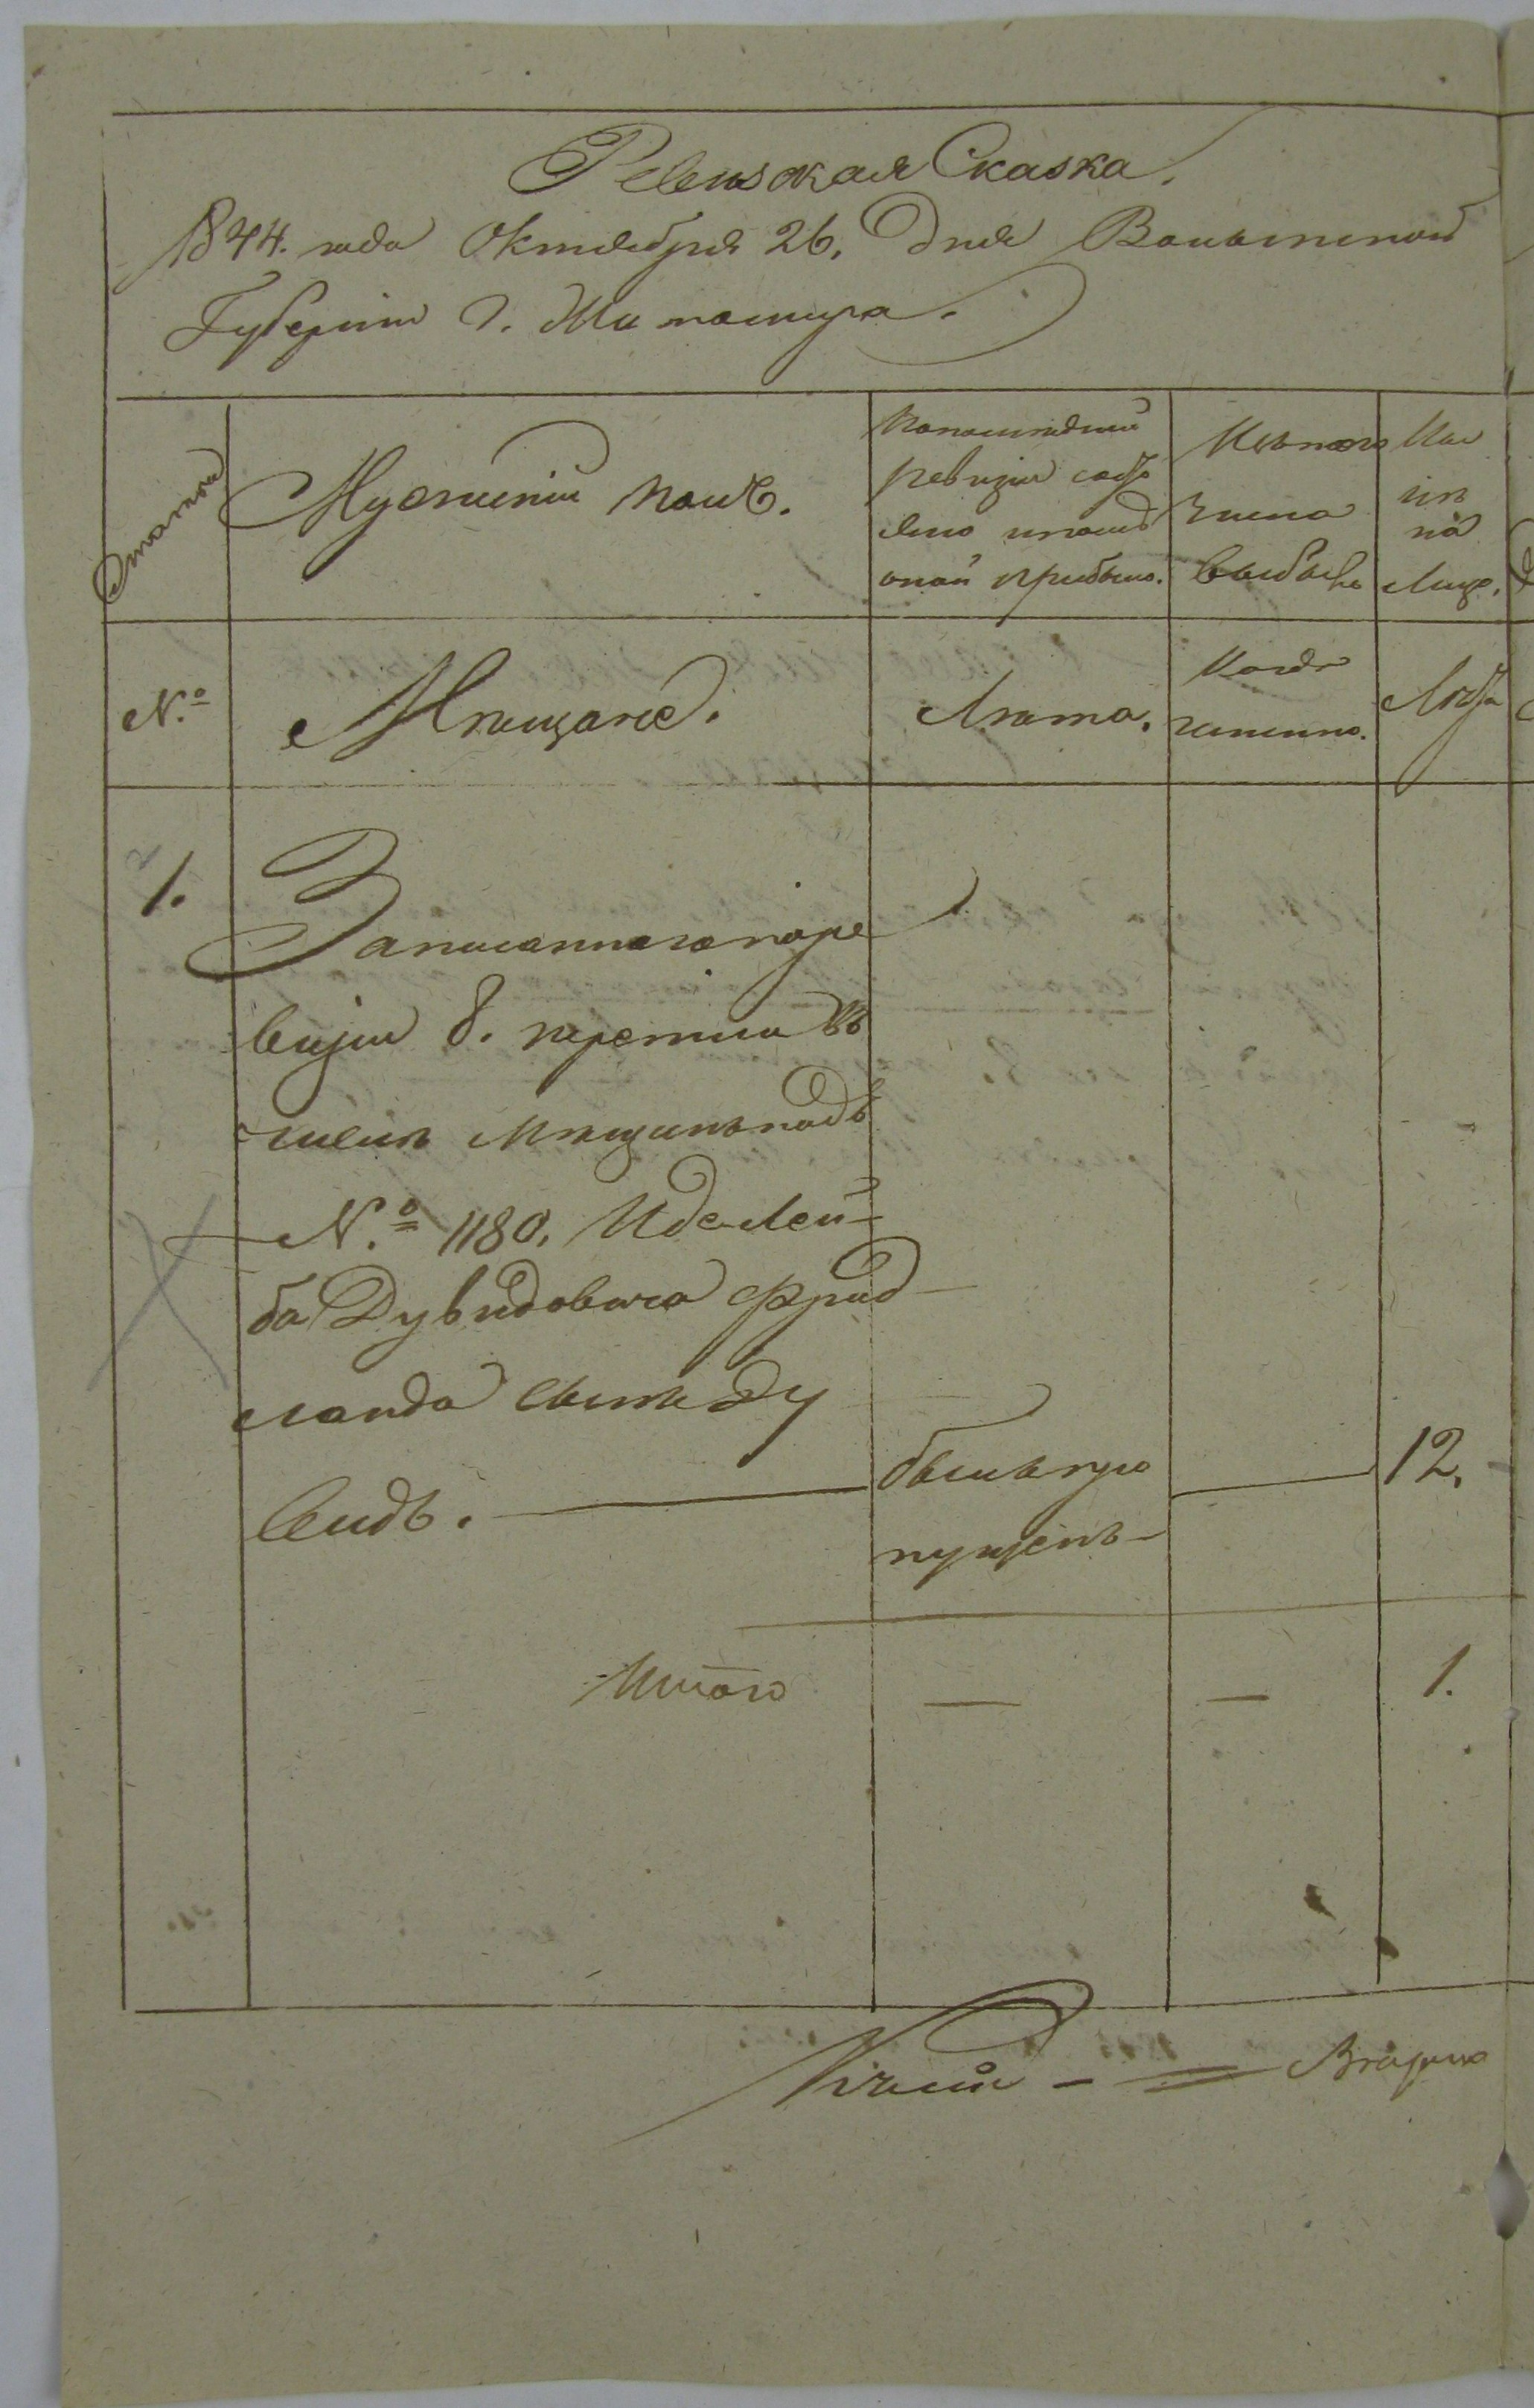 Ревизская Сказка.
1844. года Октября 26. дня Волынской
Губернии г. Житомира.
Статьи
Мужеский полъ.
По последней
ревизии состо
яло и после
оной прибыло.
Изъ того
числа
выбыло
Ныне
на
лице.
№
Мещане.
Лета.
Когда
именно.
Лета
1.
Записаннаго поре
визии 8. перепи въ
числе мещанъ подъ
№ 1180. Иделей-
ба Дувидовича Фрид-
ланда сынъ Ду
видъ.
былъ про
пущенъ
12.
Итого
1.